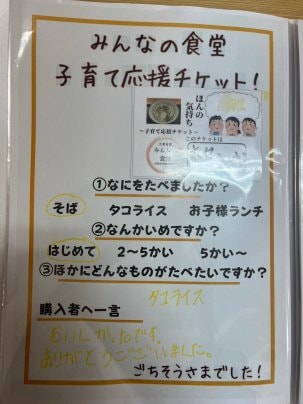 みんなの食堂
子育て応援チケット!
ほんの
気持ち
~子育て応援チケット~
このチケットは
みんな
食堂
①なにをたべましたか?
そば タコライス お子様ランチ
②なんかいめですか?
はじめて 2~5かい 5かい~
③ほかにどんなものがたべたいですか?
タコライス
購入者へ一言
おいしかったです。
ありがとうございました。
ごちそうさまでした!